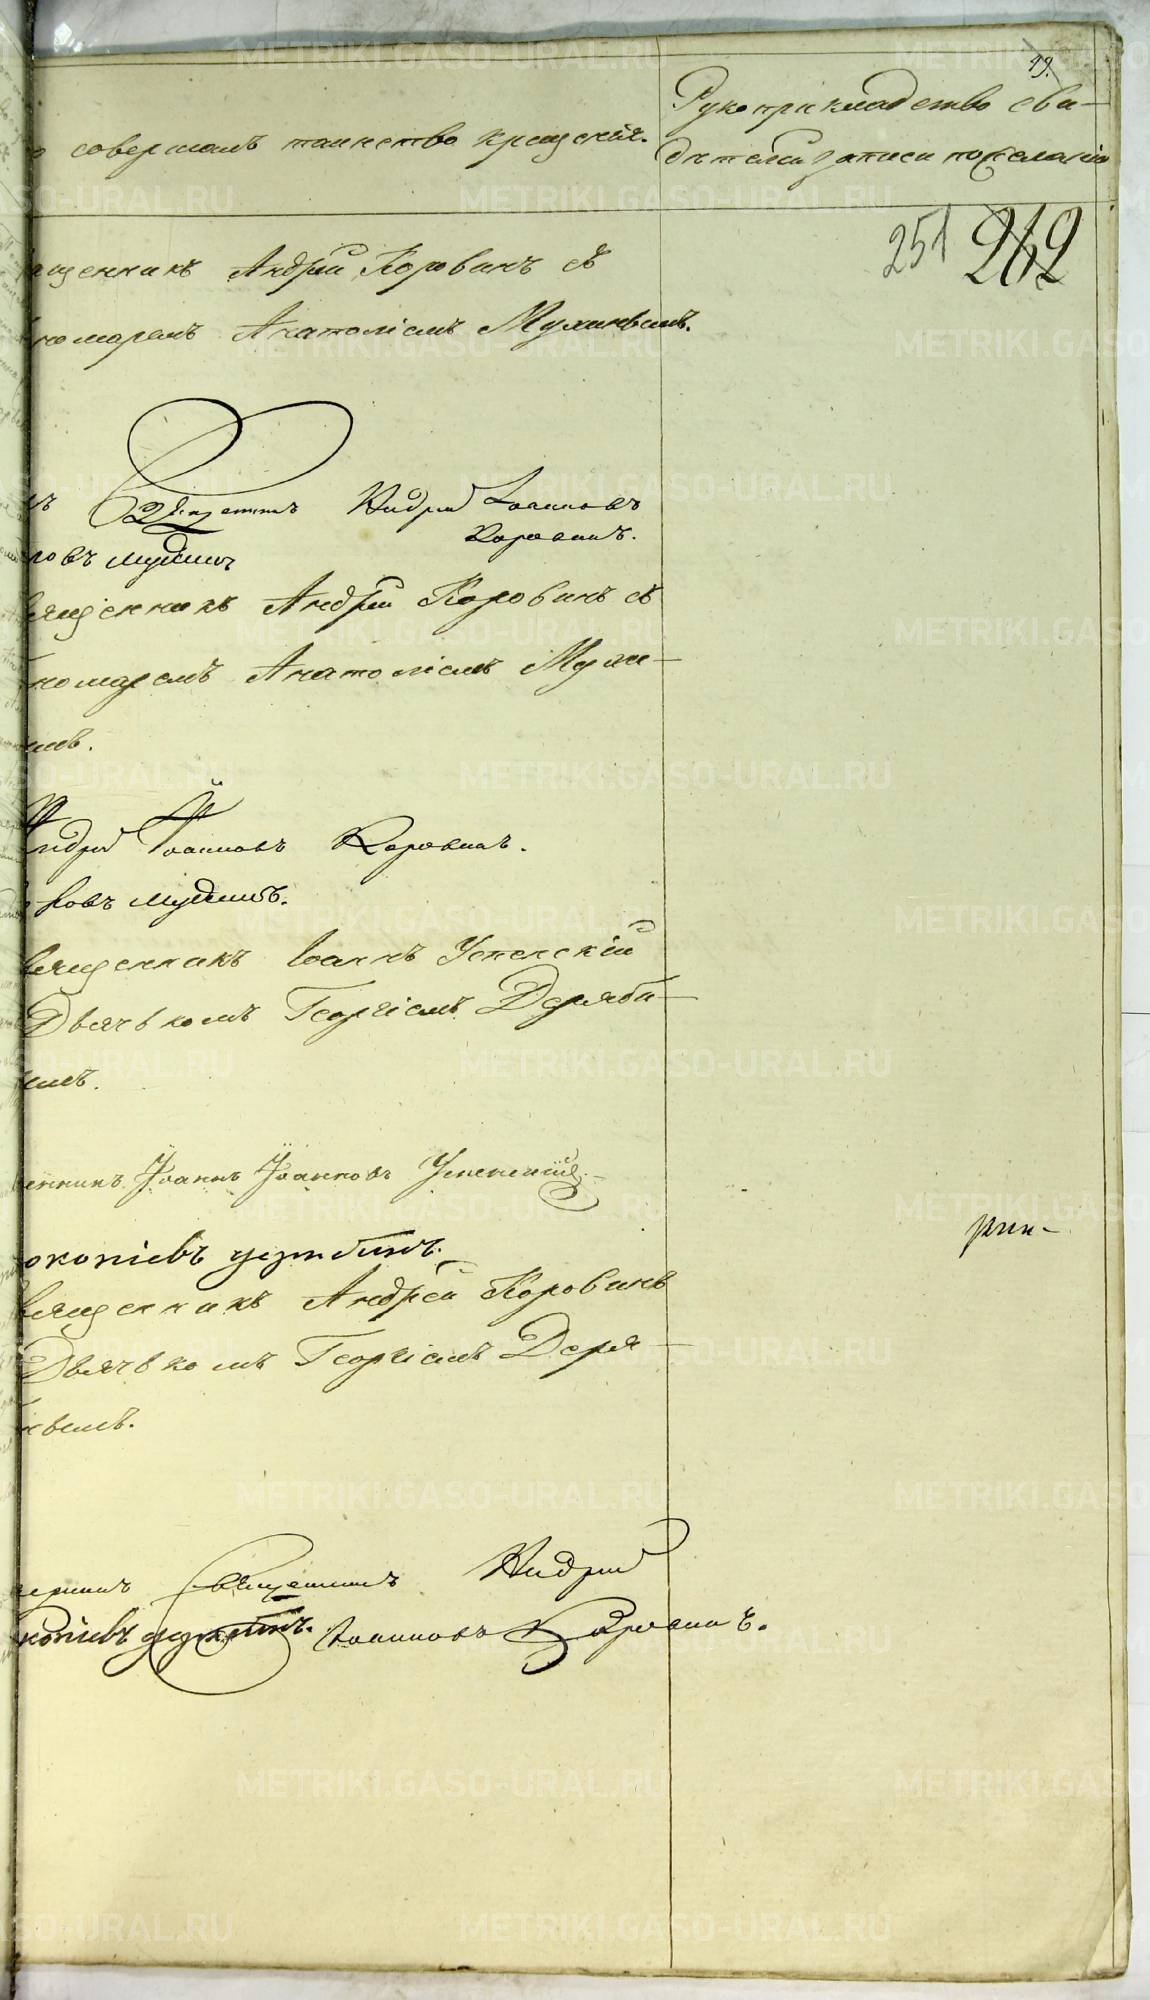 49.
о совершалъ таинство крещенія.
Рукоприкладство сви-
дѣтелей записи по желанію
251 262
ященникъ Андрей Коровинъ съ
номаремъ Анатоліемъ Мухинымъ.
Священникъ Андрей Іоанновъ
Коровинъ.
ловъ Мухинъ
вященникъ Андрей Коровинъ съ
номаремъ Анатоліемъ Мухи-
ымъ.
Андрей Іоанновъ Коровинъ.
ловъ Мухинъ.
вященникъ Іоаннъ Успенскій
Дьячькомъ Георгіемъ Деряби-
ымъ.
енникъ Іоаннъ Іоанновъ Успенскій
окопіевъ Дерябинъ.
вященникъ Андрей Коровинъ
Дьячькомъ Георгіемъ Деря-
инымъ.
Священникъ Андрей
копіевъ Дерябинъ. Іоанновъ Коровинъ.
METRIKI.GASO-URAL.RU